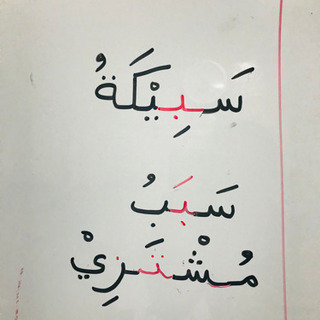 سَبِيْكَةُ
سَبَبُ
مُشْتَرِيْ